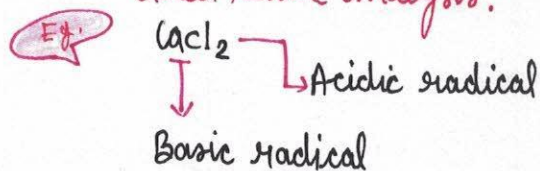 Eg.
CaCl2
Acidic radical
Basic radical